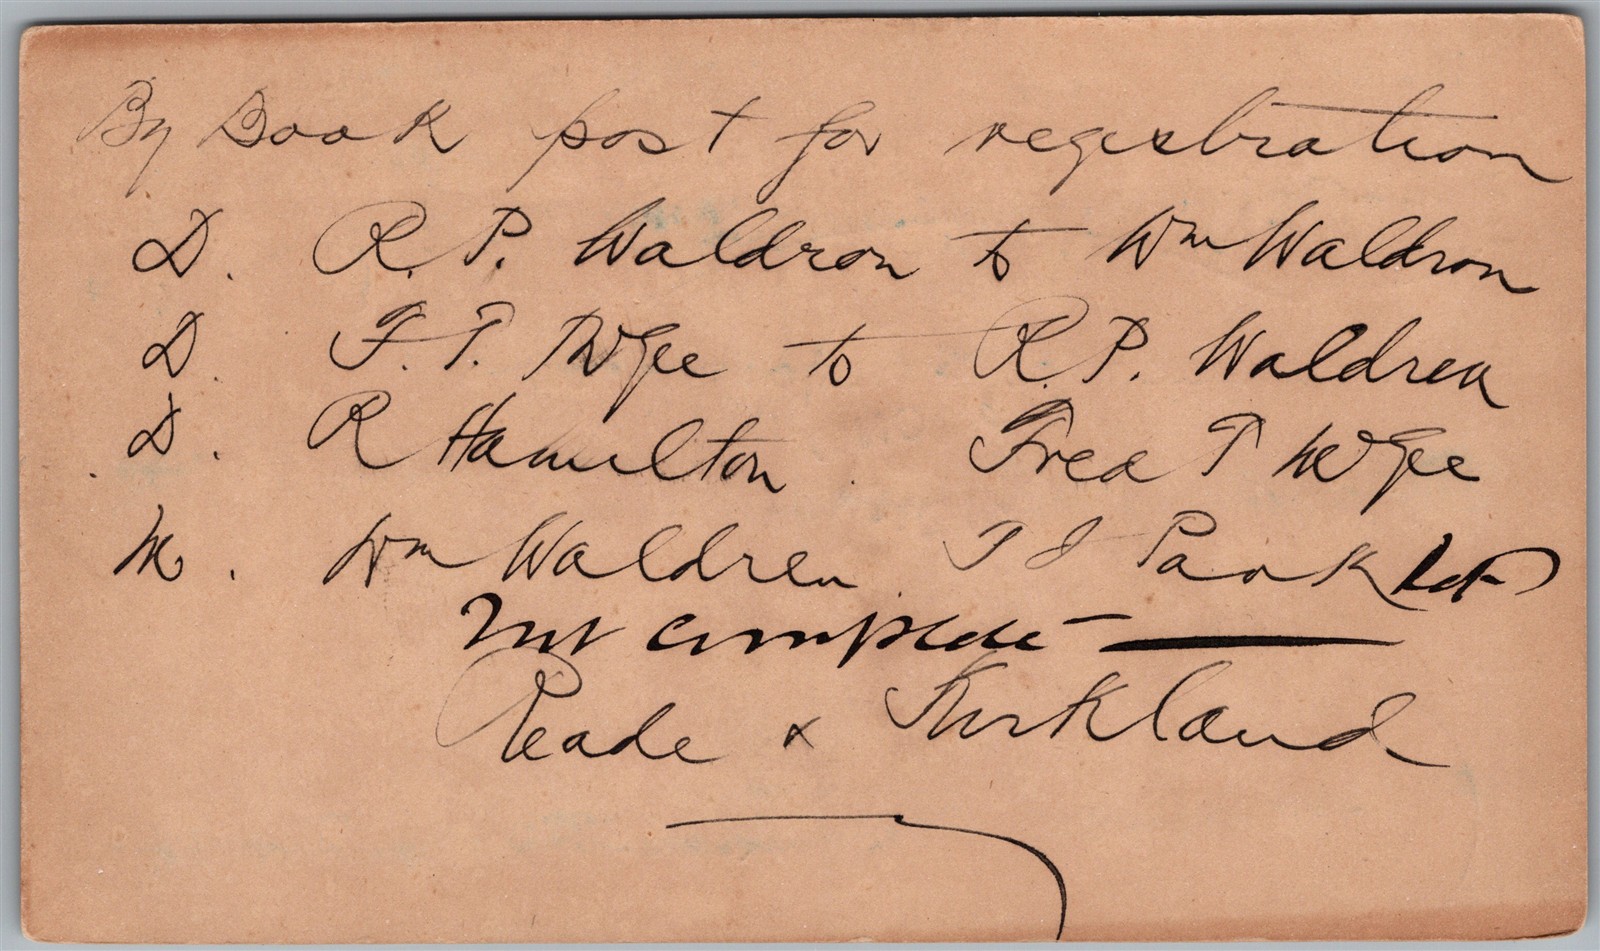 By Book post for registration
D. R. P. Waldron to Wm Waldron
D. F. T. McGee to R. P. Waldren
D. R Hamilton Fred T McGee
M. Wm Waldren T J Park
Not complete —
Reade & Kirkland